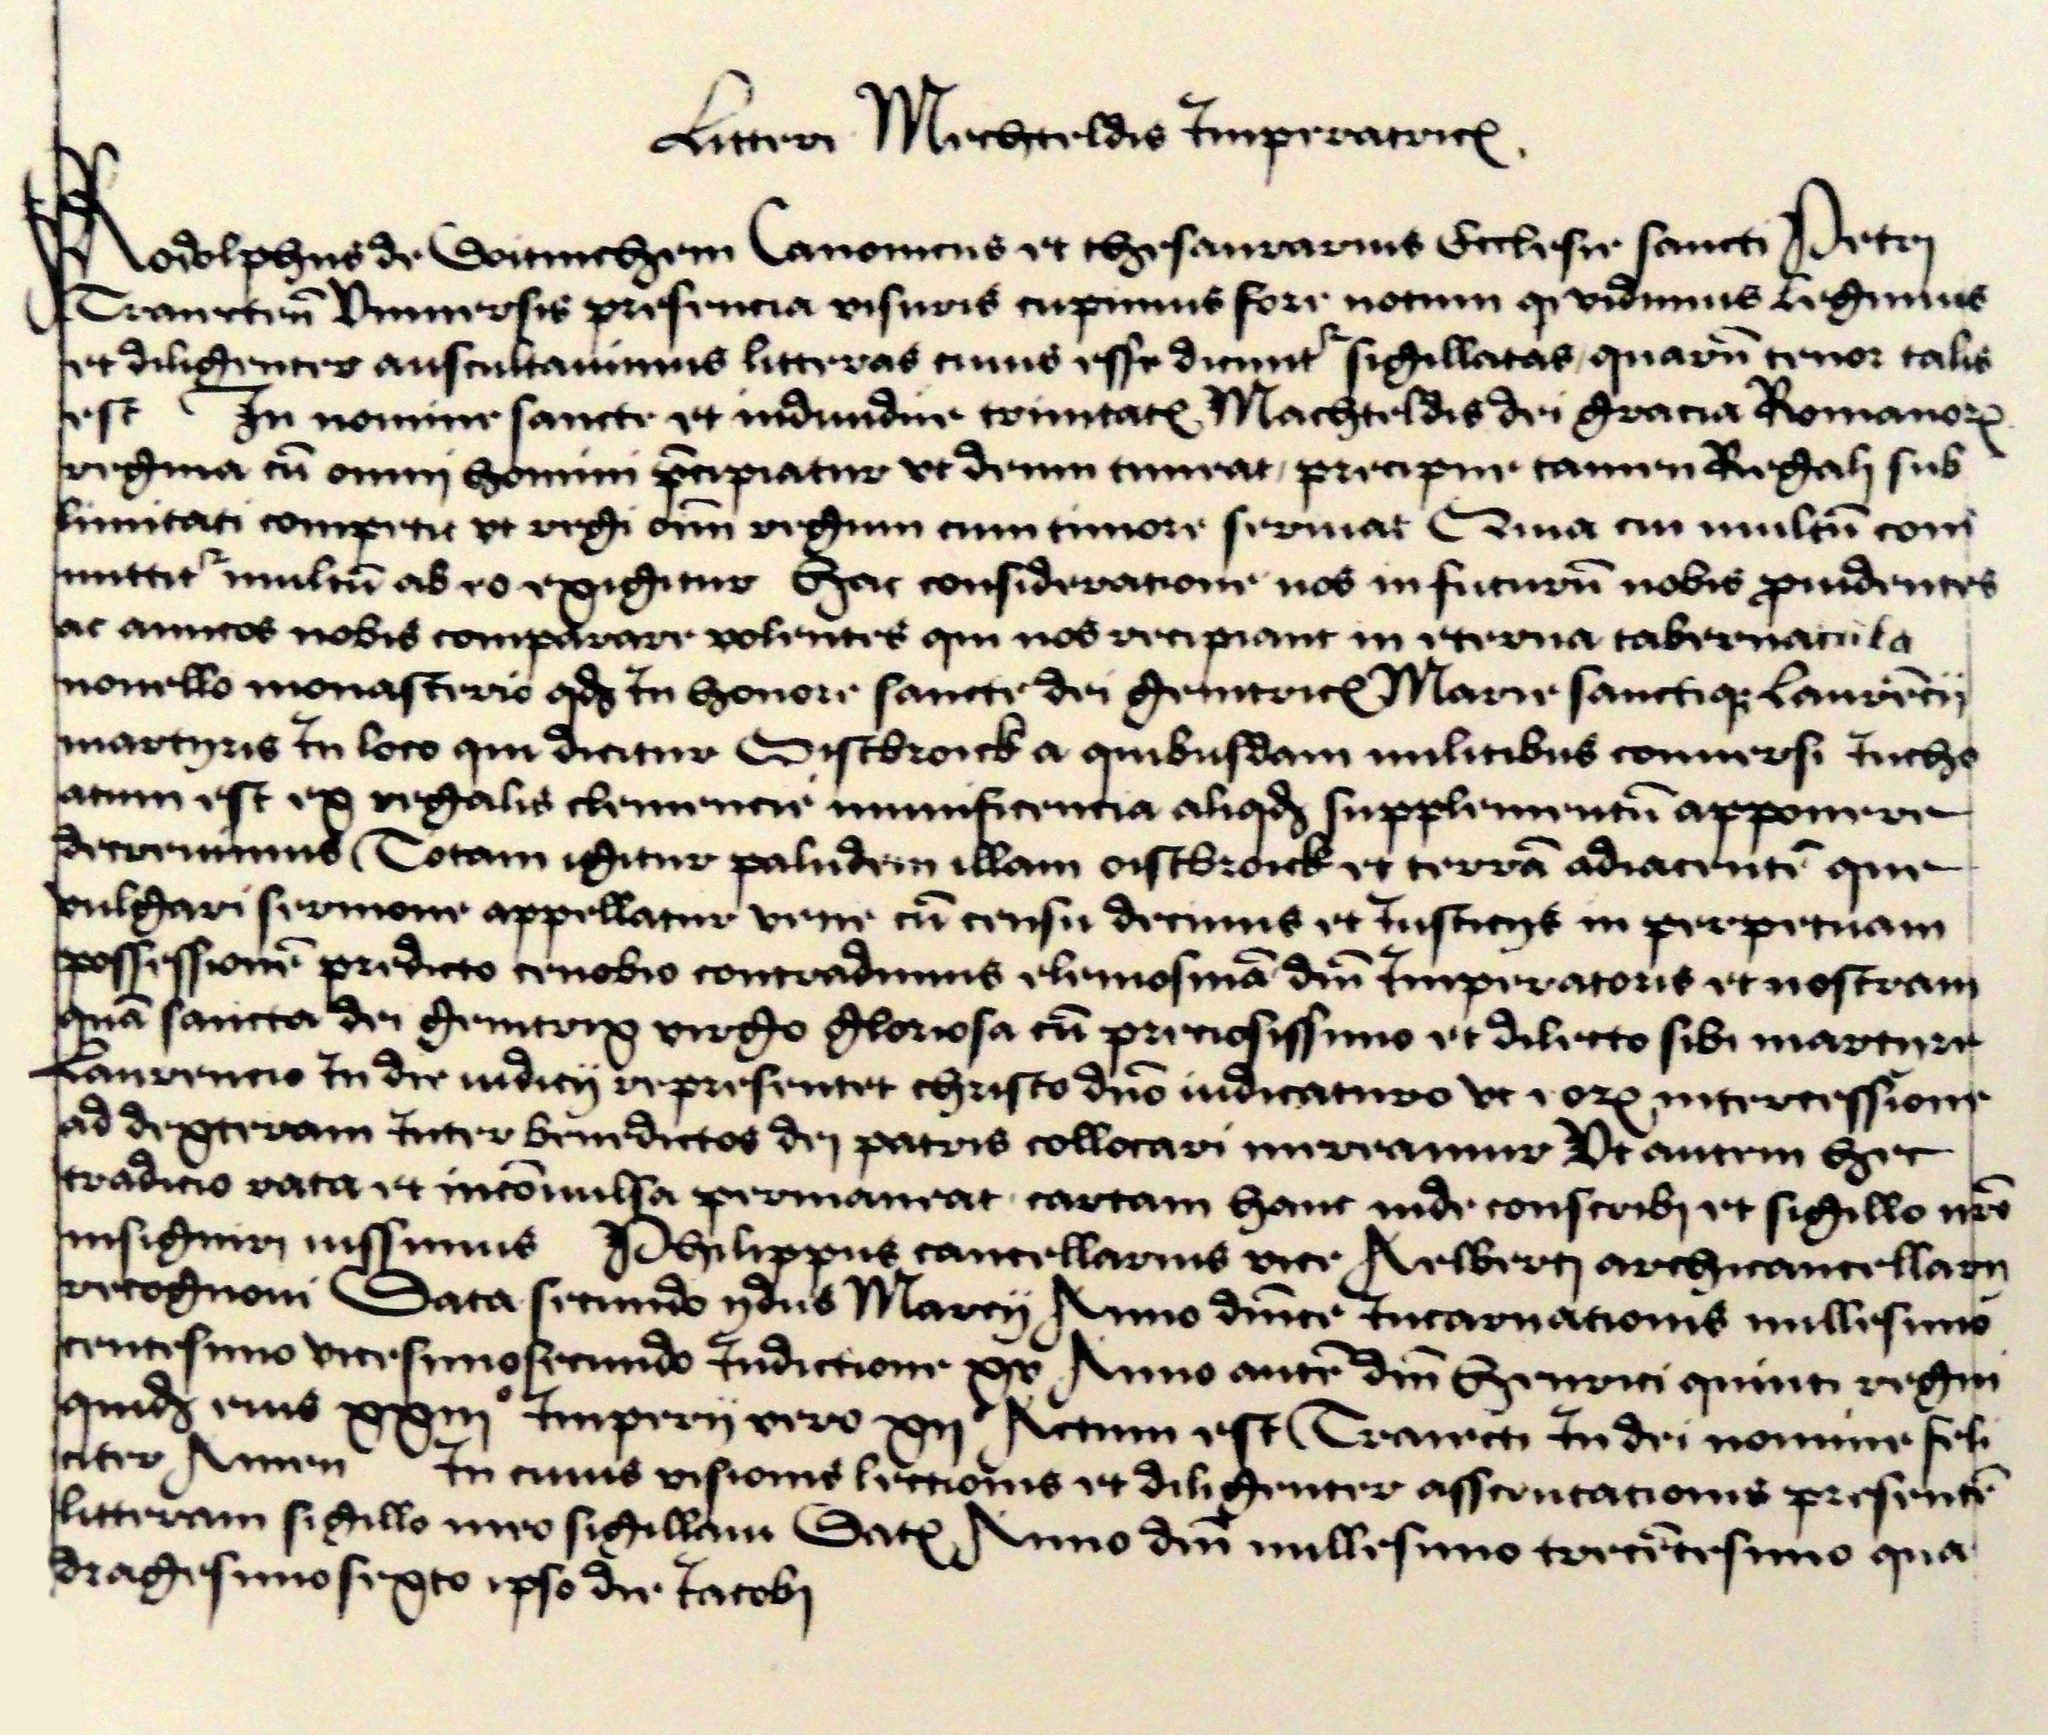 Littere Mechteldis Imperatric(is).
Rodolphus de Woinichem Canonicus et thesaurarius Ecclesie sancti Petrj
Traiecteñ Vniuersis presencia visuris cupimus fore notum q vidimus legimus
et diligenter auscultauimus litteras cuius esse dicunt(ur) sigillatas quarū tenor talis
est In nomine sancte et indiuidue trinitat(is) Machteldis dei gracia Romanor(um)
regina cū omnj homini p̄cipiatur vt deum timeat precipue tamen Regalj sub
limitati competit vt regi om̄ regum cum timore seruiat Quia cui multū com
mittit(ur) multū ab eo exigitur Hac consideratione nos in futurū nobis prouidentes
ac amicos nobis comparare volentes qui nos recipiant in eterna tabernacula
nouello monasterio qd In honore sancte dei genitric(is) Marie sanctiq Laurēcij
martyris In loco qui dicitur Oistbroick a quibusdam militibus conuersi Incho
atum est ex regalis clemencie munificencia aliqd supplementū apponere
decreuimus Totam igitur paludem illam oistbroick et terrā adiacentē que
vulgari sermone appellatur vene cū censu decimis et Iusticijs in perpetuam
possessionē predicto cenobio contradimus elemosinā dm̄ Imperatoris et nostram
quā sancta dei genitrix virgo gloriosa cū preciosissimo et dilecto sibi martyre
Laurencio In die iudicij representet christo dn̄o iudicaturo vt eor(um) intercessione
ad dexteram Inter benedictos dej patris collocari mereamur Vt autem hec
tradicio rata et incōuulsa permaneat cartam hanc inde conscribj et sigillo nr̄o
insignirj iussimus Philippus cancellarius vice Aelbertj archicancellarij
recognoui Data secundo ydus Marcij Anno dn̄ice Incarnationis millesimo
centesimo vicesimosecundo Indictione xv Anno autē dn̄i Henrici quinti regni
quid eius xxiii° Imperij vero xij° Actum est Traiecti In dei nomine feli
citer Amen In cuius visionis lectionis et diligenter asscultationis presentē
litteram sigillo meo sigillaui Dat(um) Anno dn̄i millesimo trecētesimo qua
dragesimosexto ipso die Iacobj